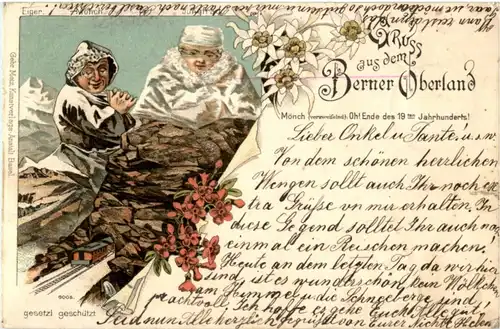 Eiger.
Mönch.
Gruss
aus dem
Berner Oberland
Mönch (verzweifelnd): Oh! Ende des 19ten Jahrhunderts!
Lieber Onkel u. Tante, u.s.w.
Von dem schönen herrlichen
Wengen sollt auch Ihr noch ex-
tra Grüße von mir erhalten. In
diese Gegend solltet Ihr auch noch
einmal ein Reischen machen.
Heute an dem letzten Tag da wir hier
sind, ist es wunderschön, kein Wölklein
am Himmel u. die Schneeberge sind
prachtvoll. Ich hoffe es gehe Euch Alle gut
Seid nun Alle herzlich gegrüsst von
6008.
gesetzl geschützt
Gebr. Metz, Kunstverlags-Anstalt Basel.